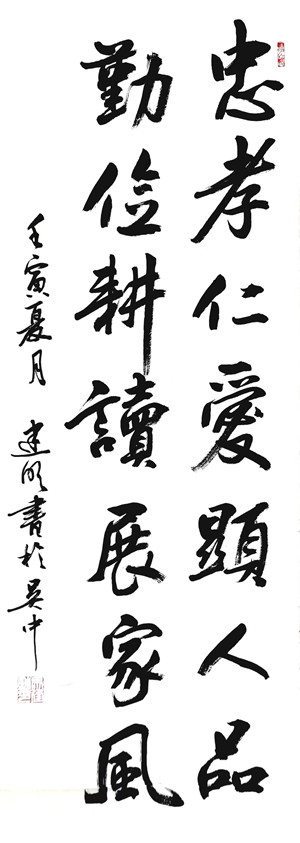 忠孝仁愛顯人品
勤儉耕讀展家風
壬寅夏月 建明書於吳中